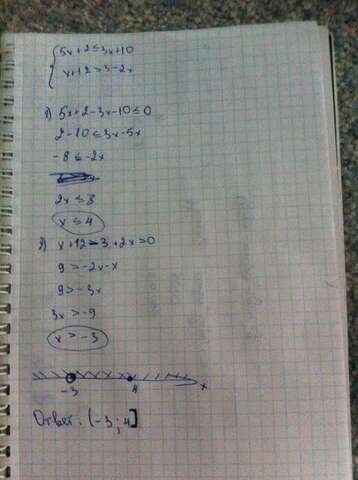 5x+2≤3x+10
x+12>3-2x
1) 5x+2-3x-10≤0
2-10≤3x-5x
-8≤-2x
2x≤8
x≤4
2) x+12-3+2x>0
9>-2x-x
9>-3x
3x>-9
x>-3
-3 4 x
Ответ: (-3;4]